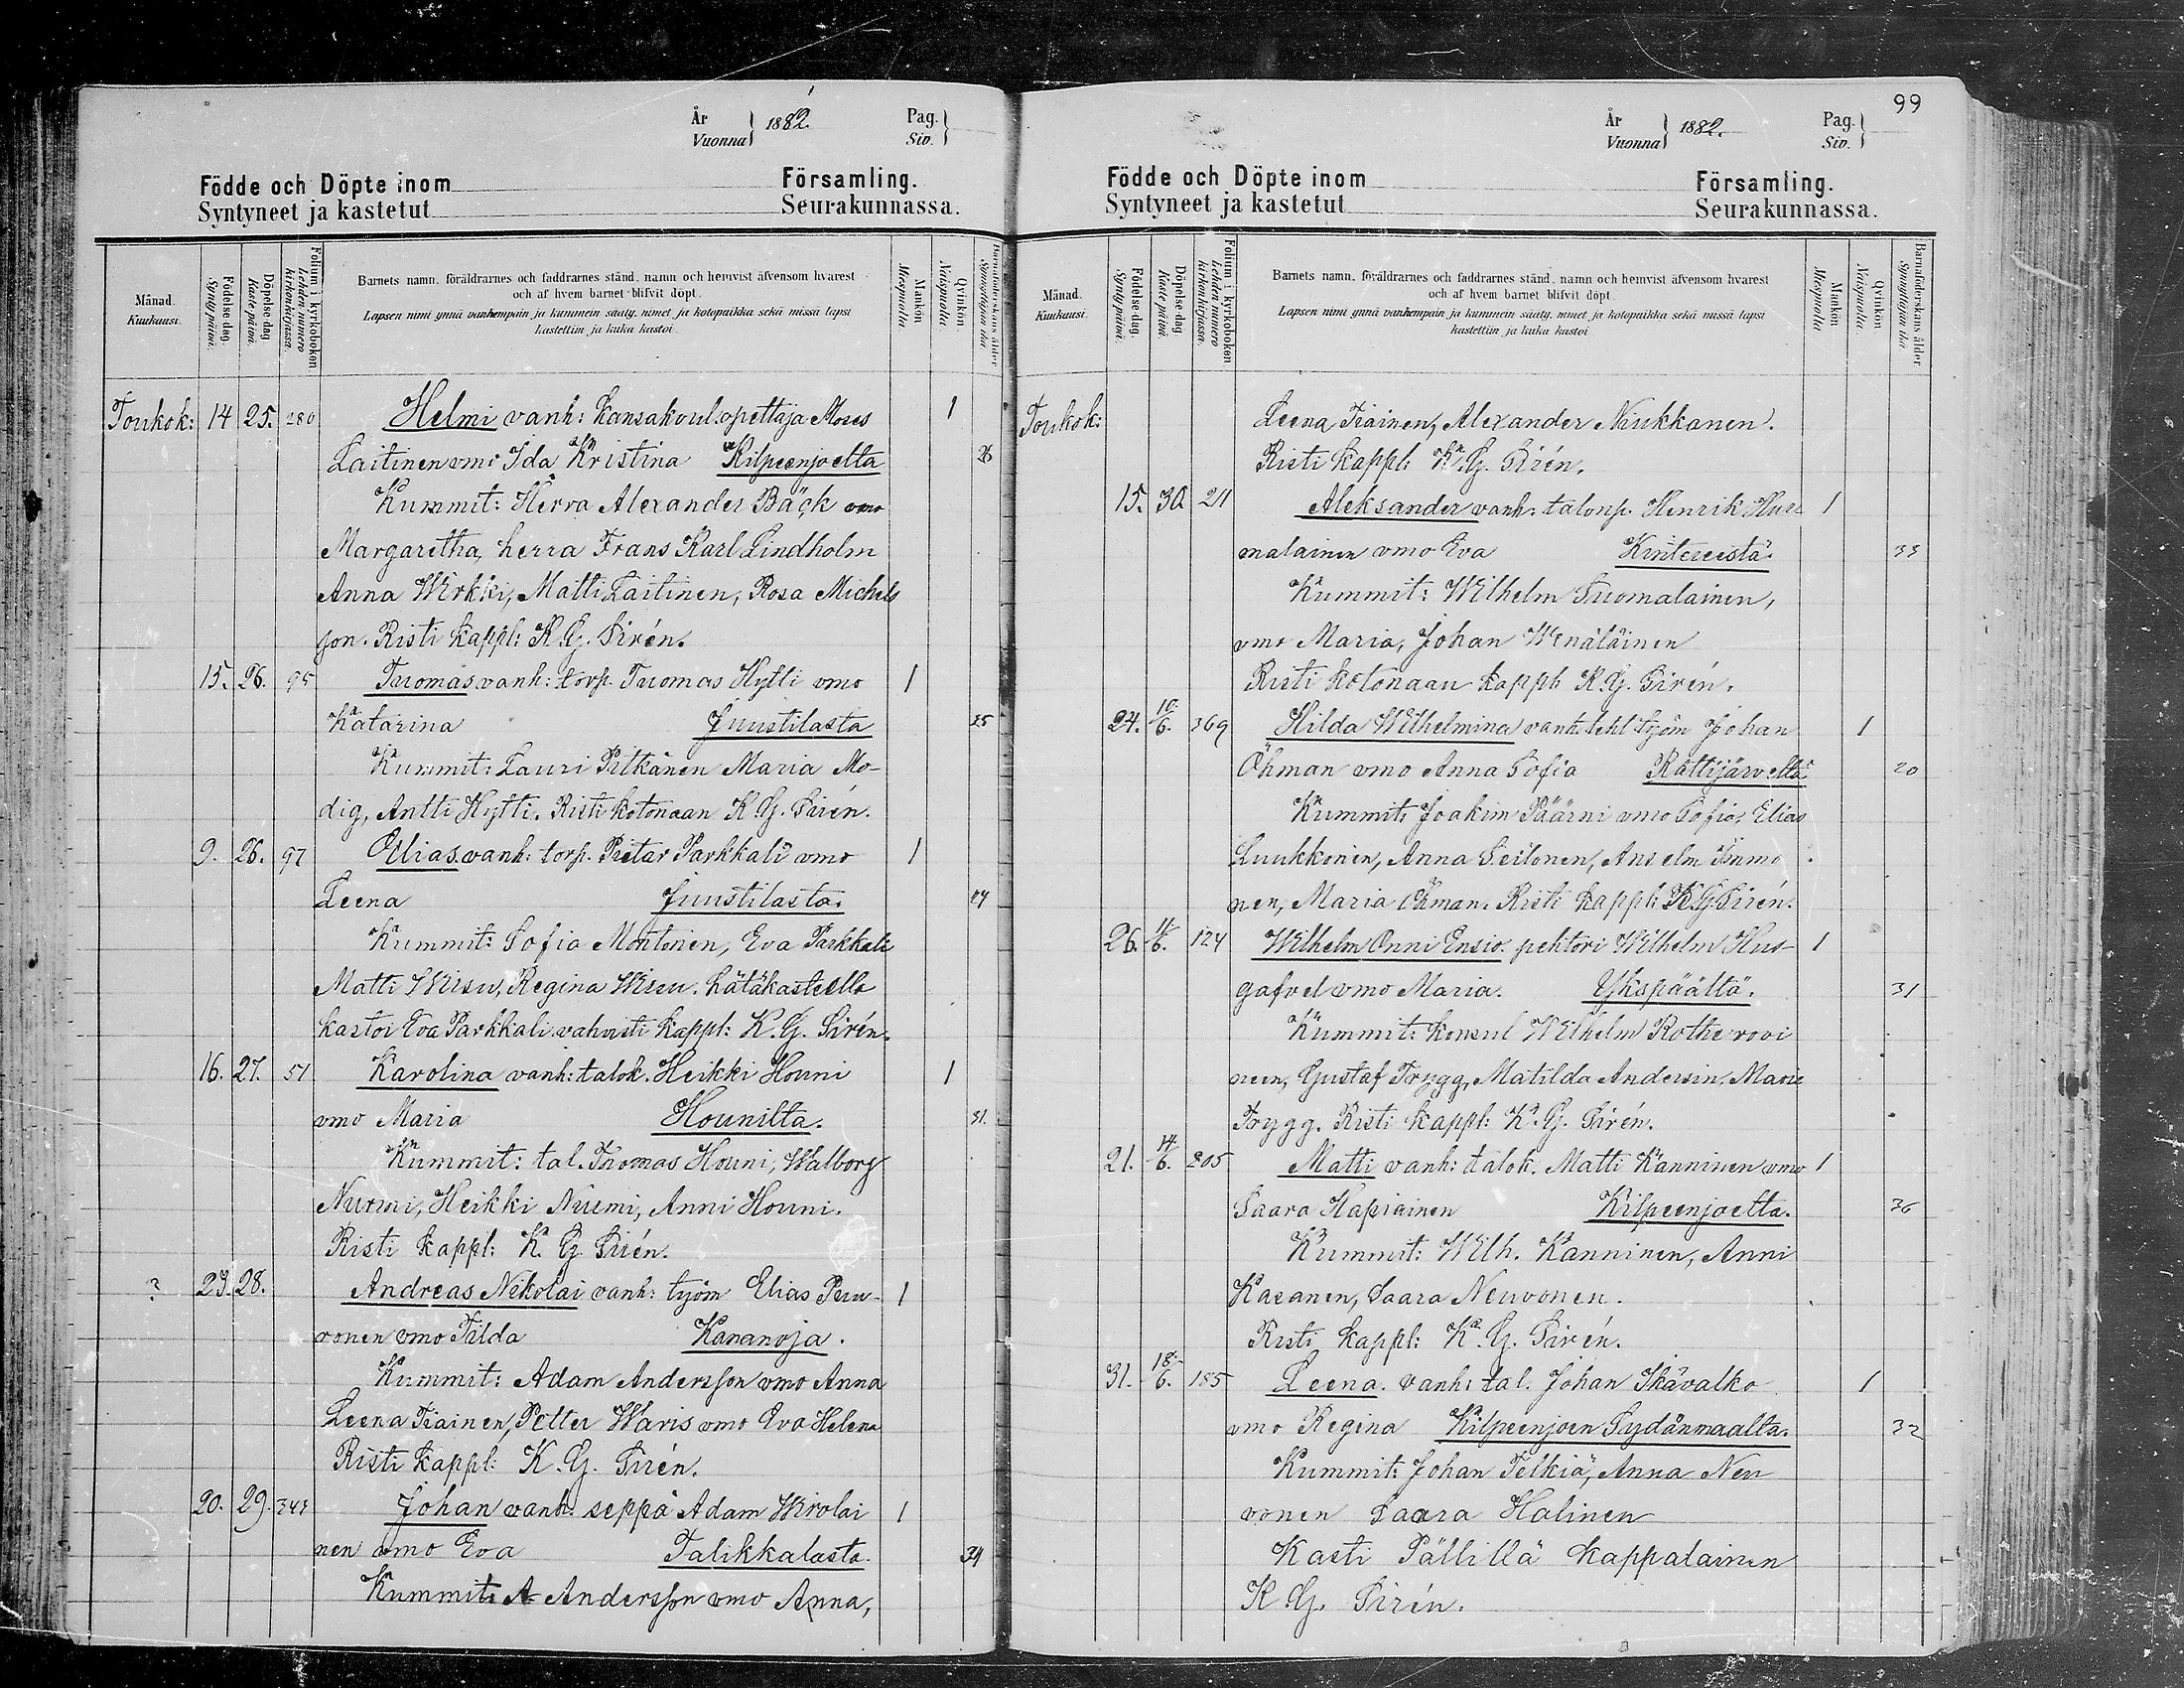 År
Vuonna } 1882.
Pag.
Siv. }
Födde och Döpte inom Församling.
Syntyneet ja kastetut Seurakunnassa.
Månad.
Kuukausi.
Födelse dag.
Syntypäivä.
Döpelse dag
Kaste päivä.
Folium i kyrkoboken
Lehden numero kirkonkirjassa.
Barnets namn, föräldrarnes och faddrarnes stånd, namn och hemvist äfvensom hvarest
och af hvem barnet blifvit döpt.
Lapsen nimi ynnä vanhempain ja kummein sääty, nimet ja kotopaikka sekä missä lapsi
kastettiin ja kuka kastoi.
Mankön
Miespuolia
Qvinkön
Naispuolia.
Barnaföderskans ålder
Synnyttäjän ikä
Toukok: 14 25. 280 Helmi vanh: Kansakoul.opettaja Moses 1
Laitinen vmo Ida Kristina Kilpeenjoelta 26
Kummit: Herra Alexander Bäck vmo
Margaretha, herra Frans Karl Lindholm
Anna Wirkki, Matti Laitinen, Rosa Michels
son. Risti kappl: K. G. Sirén.
15. 26. 95 Tuomas vanh: torp. Tuomas Hytti vmo 1
Katarina Juustilasta 25
Kummit: Lauri Pitkänen Maria Mo-
dig, Antti Hytti. Risti kotonaan K. G. Sirén.
9. 26. 97 Elias vanh: torp. Pietar Parkkali vmo 1
Leena Juustilasta.
Kummit: Sofia Montonen, Eva Parkkali
Matti Wisu, Regina Wisu. hätäkasteella
kastoi Eva Parkkali vahvisti kappl: K. G. Sirén.
16. 27. 51 Karolina vanh: talok. Heikki Houni 1
vmo Maria Hounilta. 31.
Kummit: tal. Tuomas Houni, Walborg
Nurmi, Heikki Nurmi, Anni Houni.
Risti kappl: K. G. Sirén.
? 23. 28. Andreas Nikolai vanh: työm Elias Peu- 1
vonen vmo Tilda Kananoja.
Kummit: Adam Andersson vmo Anna
Leena Tiainen, Petter Waris vmo Eva Helena
Risti kappl: K. G. Sirén.
20. 29. 343 Johan vanh: seppä Adam Wirolai 1
nen vmo Eva Talikkalasta. 34
Kummit: A Andersson vmo Anna,
99
År
Vuonna } 1882.
Pag.
Siv. }
Födde och Döpte inom Församling.
Syntyneet ja kastetut Seurakunnassa.
Månad.
Kuukausi.
Födelse dag.
Syntypäivä.
Döpelse dag
Kaste päivä.
Folium i kyrkoboken
Lehden numero kirkonkirjassa.
Barnets namn, föräldrarnes och faddrarnes stånd, namn och hemvist äfvensom hvarest
och af hvem barnet blifvit döpt.
Lapsen nimi ynnä vanhempain ja kummein sääty, nimet ja kotopaikka sekä missä lapsi
kastettiin ja kuka kastoi.
Mankön
Miespuolia
Qvinkön
Naispuolia.
Barnaföderskans ålder
Synnyttäjän ikä
Toukok: Leena Tiainen, Alexander Niukkanen.
Risti kappl: K. G. Sirén.
15. 30. 211 Aleksander vanh: talonp. Henrik Hur 1
malainen vmo Eva Kintereestä. 33
Kummit: Wilhelm Suomalainen,
vmo Maria, Johan Wenäläinen
Risti kotonaan kappl K. G. Sirén.
24. 10/6. 369 Hilda Wilhelmina vanh. tehl työm Johan 1
Öhman vmo Anna Sofia Rättijärveltä 20
Kummit: Joakim Päärni vmo Sofia, Elias
Luukkonen, Anna Seilonen, Anselm Immo
nen, Maria Öhman. Risti kappl: K. G. Sirén.
26. 11/6. 124 Wilhelm Onni Ensio. pehtori Wilhelm Hus- 1
gafvel vmo Maria. Ykspäältä. 31
Kummit: konsul Wilhelm Rothe rovi
neen, Gustaf Trygg, Matilda Andersin, Marie
Trygg. Risti kappl: K. G. Sirén.
21. 14/6. 205 Matti vanh: talok. Matti Kanninen vmo 1
Saara Hapiainen Kilpeenjoelta. 36
Kummit: Wilh. Kanninen, Anni
Kasanen, Saara Neuvonen.
Risti kappl: K. G. Sirén.
31. 18/6. 185 Leena. vanh: tal. Johan Ikävalko 1
vmo Regina Kilpeenjoen Sydänmaalta. 32
Kummit: Johan Telkiä, Anna Neu
vonen Saara Halinen
Kasti Pällillä kappalainen
K G. Sirén.